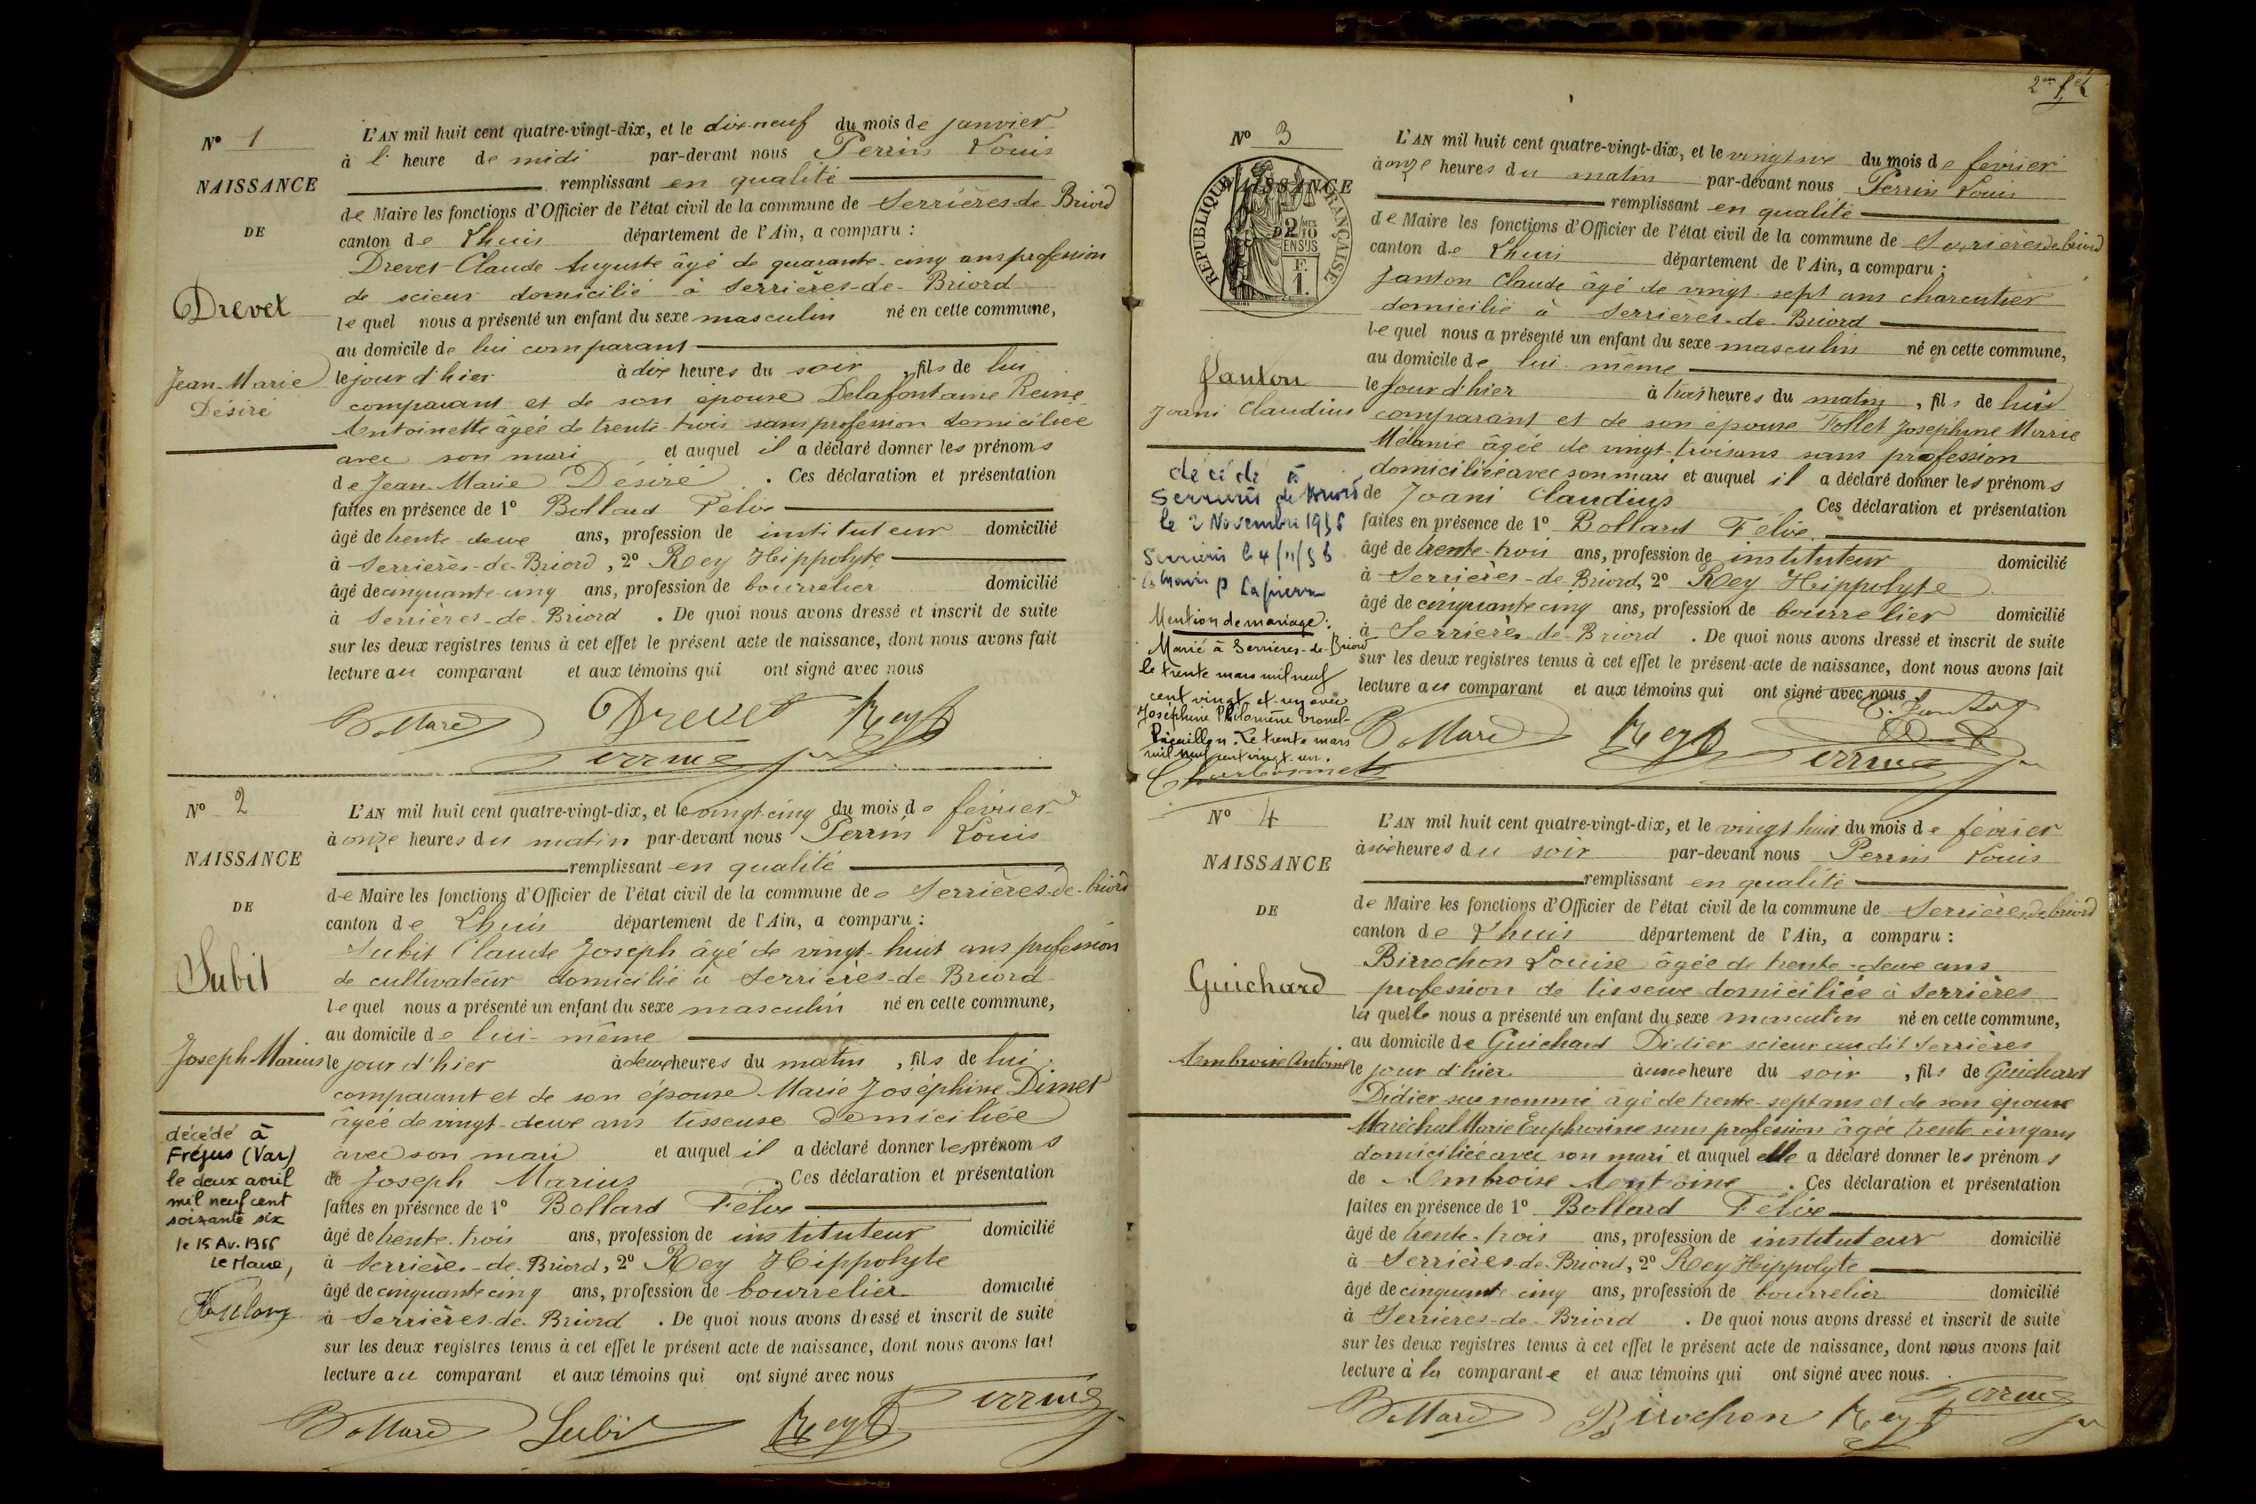 N° 1
NAISSANCE
DE
Drevet
Jean-Marie
Désiré
L'AN mil huit cent quatre-vingt-dix, et le dix-neuf du mois de janvier
à l' heure de midi par-devant nous Perrin Louis
remplissant en qualité
de Maire les fonctions d'Officier de l'état civil de la commune de Serrières-de-Briord
canton de Lhuis département de l'Ain, a comparu :
Drevet Claude Auguste âgé de quarante-cinq ans profession
de scieur domicilié à Serrières-de-Briord
lequel nous a présenté un enfant du sexe masculin né en cette commune,
au domicile de lui comparant
le jour d'hier à dix heures du soir, fils de lui
comparant et de son épouse Delafontaine Reine
Antoinette âgée de trente-trois sans profession domiciliée
avec son mari et auquel il a déclaré donner les prénoms
de Jean-Marie Désiré. Ces déclaration et présentation
faites en présence de 1° Bollard Félix
âgé de trente-deux ans, profession de instituteur domicilié
à Serrières-de-Briord, 2° Rey Hippolyte
âgé de cinquante-cinq ans, profession de bourrelier domicilié
à Serrières-de-Briord. De quoi nous avons dressé et inscrit de suite
sur les deux registres tenus à cet effet le présent acte de naissance, dont nous avons fait
lecture au comparant et aux témoins qui ont signé avec nous
Bollard Drevet Rey
Perrin
N° 2
NAISSANCE
DE
Subit
Joseph Marius
décédé à
Fréjus (Var)
le deux avril
mil neuf cent
soixante six
le 15 Av. 1966
Le Maire,
L'AN mil huit cent quatre-vingt-dix, et le vingt-cinq du mois de février
à onze heures du matin par-devant nous Perrin Louis
remplissant en qualité
de Maire les fonctions d'Officier de l'état civil de la commune de Serrières-de-briord
canton de Lhuis département de l'Ain, a comparu :
Subit Claude Joseph âgé de vingt-huit ans profession
de cultivateur domicilié à Serrières-de-Briord
lequel nous a présenté un enfant du sexe masculin né en cette commune,
au domicile de lui-même
le jour d'hier à deux heures du matin, fils de lui
comparant et de son épouse Marie Joséphine Dimet
âgée de vingt-deux ans tisseuse domiciliée
avec son mari et auquel il a déclaré donner les prénoms
de Joseph Marius. Ces déclaration et présentation
faites en présence de 1° Bollard Félix
âgé de trente-trois ans, profession de instituteur domicilié
à Serrières-de-Briord, 2° Rey Hippolyte
âgé de cinquante cinq ans, profession de bourrelier domicilié
à Serrières-de-Briord. De quoi nous avons dressé et inscrit de suite
sur les deux registres tenus à cet effet le présent acte de naissance, dont nous avons fait
lecture au comparant et aux témoins qui ont signé avec nous
Bollard Subit Rey Perrin
N° 3
NAISSANCE
RÉPUBLIQUE FRANÇAISE
2/10
EN SUS
F.
1.
Janton
Joani Claudius
décédé à
Serrières de Briord
le 2 Novembre 1956
Serrières le 4/11/56
Mention de mariage :
Marié à Serrières-de-Briord
le trente mars mil neuf
cent vingt et un avec
Joséphine Philomène
Le trente mars
mil neuf cent vingt un.
L'AN mil huit cent quatre-vingt-dix, et le vingt six du mois de février
à onze heures du matin par-devant nous Perrin Louis
remplissant en qualité
de Maire les fonctions d'Officier de l'état civil de la commune de Serrières de briord
canton de Lhuis département de l'Ain, a comparu :
Janton Claude âgé de vingt-sept ans charentier
domicilié à Serrières-de-Briord
lequel nous a présenté un enfant du sexe masculin né en cette commune,
au domicile de lui même
le jour d'hier à trois heures du matin, fils de lui
comparant et de son épouse Follet Joséphine Marie
Mélanie âgée de vingt-trois ans sans profession
domiciliée avec son mari et auquel il a déclaré donner les prénoms
de Joani Claudius Ces déclaration et présentation
faites en présence de 1° Bollard Félix
âgé de trente-trois ans, profession de instituteur domicilié
à Serrières-de-Briord, 2° Rey Hippolyte
âgé de cinquante cinq ans, profession de bourrelier domicilié
à Serrières-de-Briord. De quoi nous avons dressé et inscrit de suite
sur les deux registres tenus à cet effet le présent acte de naissance, dont nous avons fait
lecture au comparant et aux témoins qui ont signé avec nous
C. Janton
Bollard Rey Perrin
N° 4
NAISSANCE
DE
Guichard
Ambroise Antoine
L'AN mil huit cent quatre-vingt-dix, et le vingt huit du mois de février
à six heures du soir par-devant nous Perrin Louis
remplissant en qualité
de Maire les fonctions d'Officier de l'état civil de la commune de Serrières de briord
canton de Lhuis département de l'Ain, a comparu :
Birrochon Louise âgée de trente-deux ans
profession de tisseuse domiciliée à Serrières
laquelle nous a présenté un enfant du sexe masculin né en cette commune,
au domicile de Guichard Didier scieur au dit Serrières
le jour d'hier à une heure du soir, fils de Guichard
Didier sus nommé âgé de trente-sept ans et de son épouse
Maréchal Marie Euphrosine sans profession âgée trente cinq ans
domiciliée avec son mari et auquel elle a déclaré donner les prénoms
de Ambroise Antoine. Ces déclaration et présentation
faites en présence de 1° Bollard Félix
âgé de trente-trois ans, profession de instituteur domicilié
à Serrières-de-Briord, 2° Rey Hippolyte
âgé de cinquante-cinq ans, profession de bourrelier domicilié
à Serrières-de-Briord. De quoi nous avons dressé et inscrit de suite
sur les deux registres tenus à cet effet le présent acte de naissance, dont nous avons fait
lecture à la comparante et aux témoins qui ont signé avec nous.
Bollard Birochon Rey Perrin